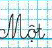 Một